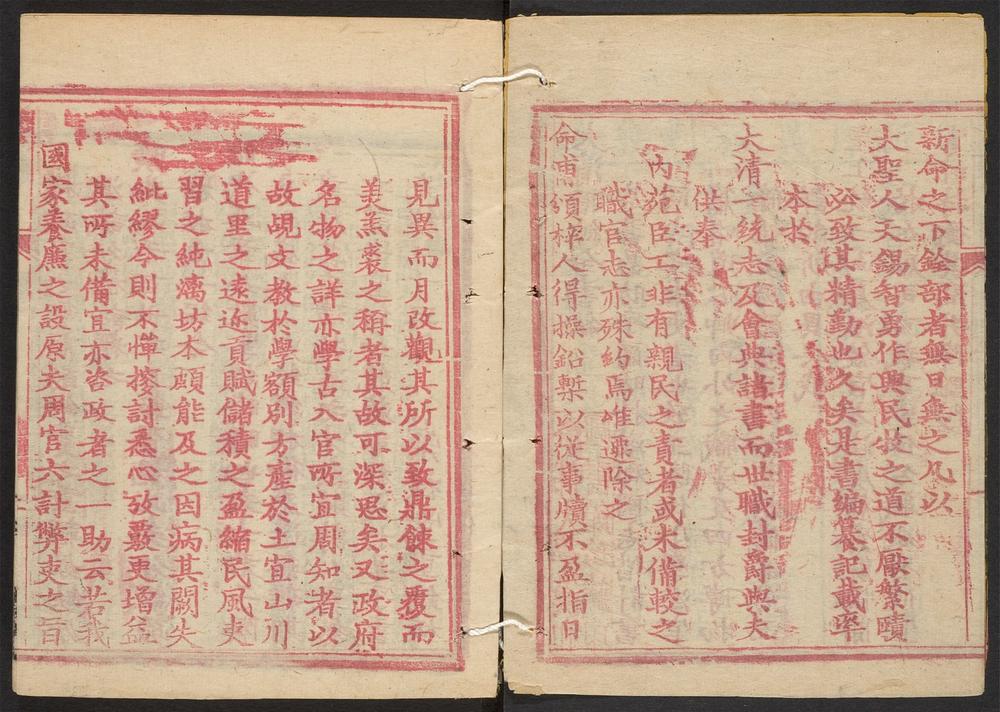 新命之下銓部者無日無之凡以
大聖人天錫智勇作興民牧之道不厭繁賾
必致其精勤也久矣是書編纂記載率
本於
大清一統志及會典諸書而世職封爵與夫
供奉
內苑臣工非有親民之責者或未備較之
職官志亦殊約焉惟遷除之
命甫頒梓人得操鉛槧以從事牘不盈指日
見異而月改觀其所以致鼎餗之覆而
羙羔裘之稱者其故可深思矣又政府
名物之詳亦學古入官所宜周知者以
故覘文教於學額別方產於土宜山川
道里之遠近貢賦儲積之盈縮民風吏
習之純漓坊本頗能及之因病其闕失
紕繆今則不憚搜討悉心攷覈更增益
其所未備宜亦咨政者之一助云若我
國家養廉之設原夫周官六計弊吏之旨